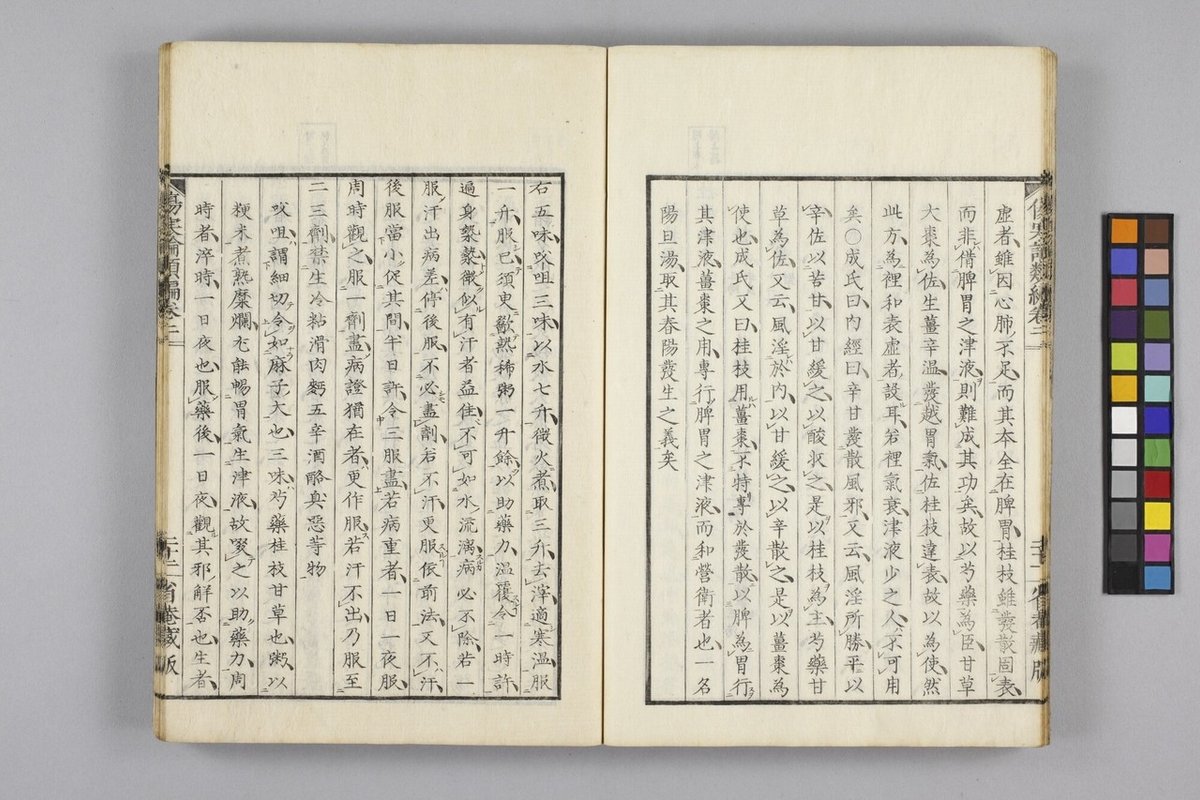 虛者雖因心肺不足而其本全在脾胃桂枝雖發散固表
而非借脾胃之津液則難成其功矣故以芍藥為臣甘草
大棗為佐生薑辛溫發越胃氣佐桂枝達表故以為使然
此方為裡和表虛者設耳若裡氣衰津液少之人不可用
矣〇成氏曰內經曰辛甘發散風邪又云風淫所勝平以
辛佐以苦甘以甘緩之以酸收之是以桂枝為主芍藥甘
草為佐又云風淫於內以甘緩之以辛散之是以薑棗為
使也成氏又曰桂枝用薑棗不特專於發散以脾為胃行
其津液薑棗之用專行脾胃之津液而和營衛者也一名
陽旦湯取其春陽發生之義矣
右五味㕮咀三味以水七升微火煮取三升去滓適寒溫服
一升服已須臾歠熱稀粥一升餘以助藥力溫覆令一時許
遍身漐漐微似有汗者益佳不可如水流漓病必不除若一
服汗出病差停後服不必盡劑若不汗更服依前法又不汗
後服當小促其間半日許令三服盡若病重者一日一夜服
周時觀之服一劑盡病證猶在者更作服若汗不出乃服至
二三劑禁生冷粘滑肉麪五辛酒酪臭惡等物
㕮咀謂細切令如麻子大也三味芍藥桂枝甘草也粥以
粳米煮熟糜爛尤能暢胃氣生津液故啜之以助藥力周
時者淬時一日夜也服藥後一日夜觀其邪解否也生者
傷寒論類編卷二
二十二
省菴藏版